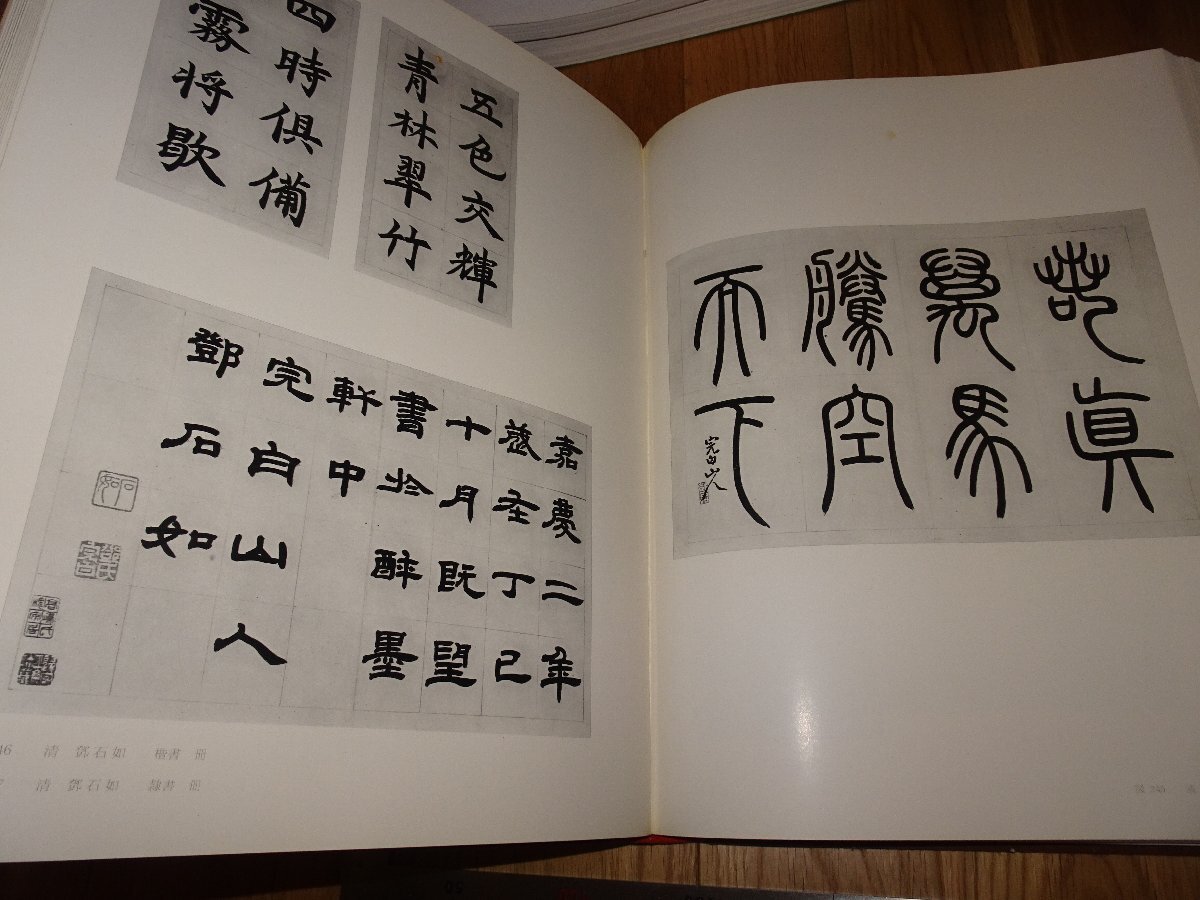 五色交輝
青林翠竹
四時俱備
霧將歇
嘉慶二年
歲在丁巳
十月既望
書於醉墨
軒中
完白山人
鄧石如
石如
46 清 鄧石如 楷書 冊
7 清 鄧石如 隸書 冊
真
萬馬
騰空
而下
完白山人